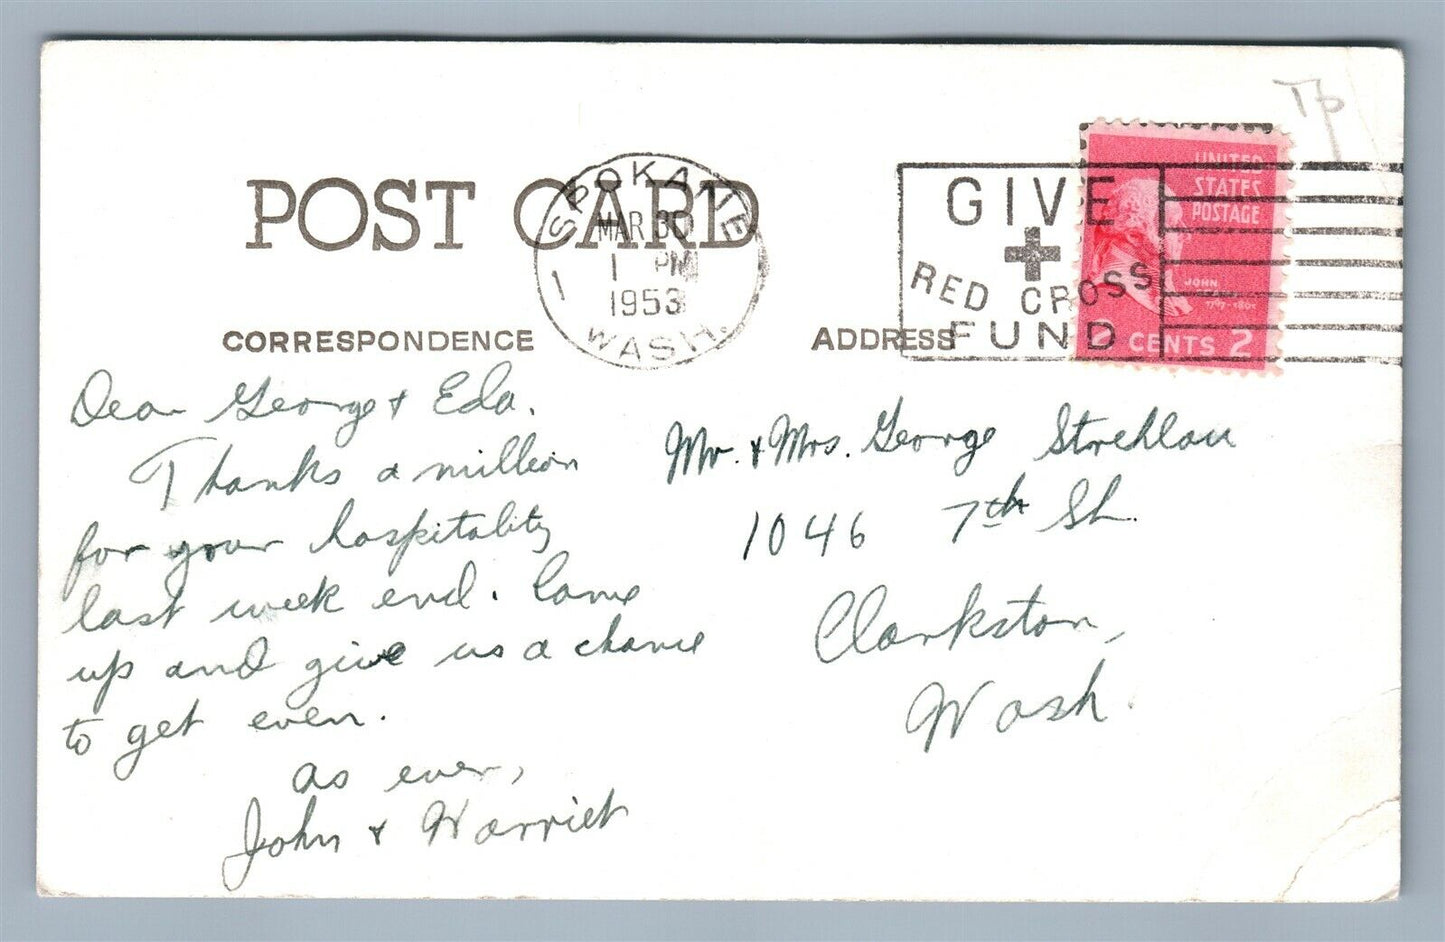 Tp
POST CARD
SPOKANE
MAR 30
1 PM
1953
1
WASH.
GIVE
RED CROSS
FUND
UNITED
STATES
POSTAGE
JOHN
1797-1801
2 CENTS 2
CORRESPONDENCE
ADDRESS
Dear George & Eda.
Thanks a million
for your hospitality
last week end. Come
up and give us a chance
to get even.
as ever,
John & Harriet
Mr. & Mrs. George Strehlau
1046 7th St.
Clarkston,
Wash.